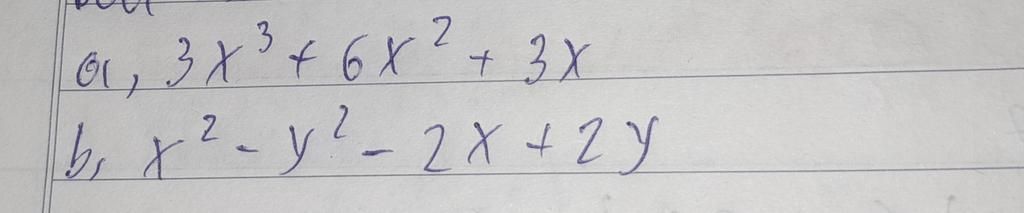 a, 3x³ + 6x² + 3x
b, x² - y² - 2x + 2y